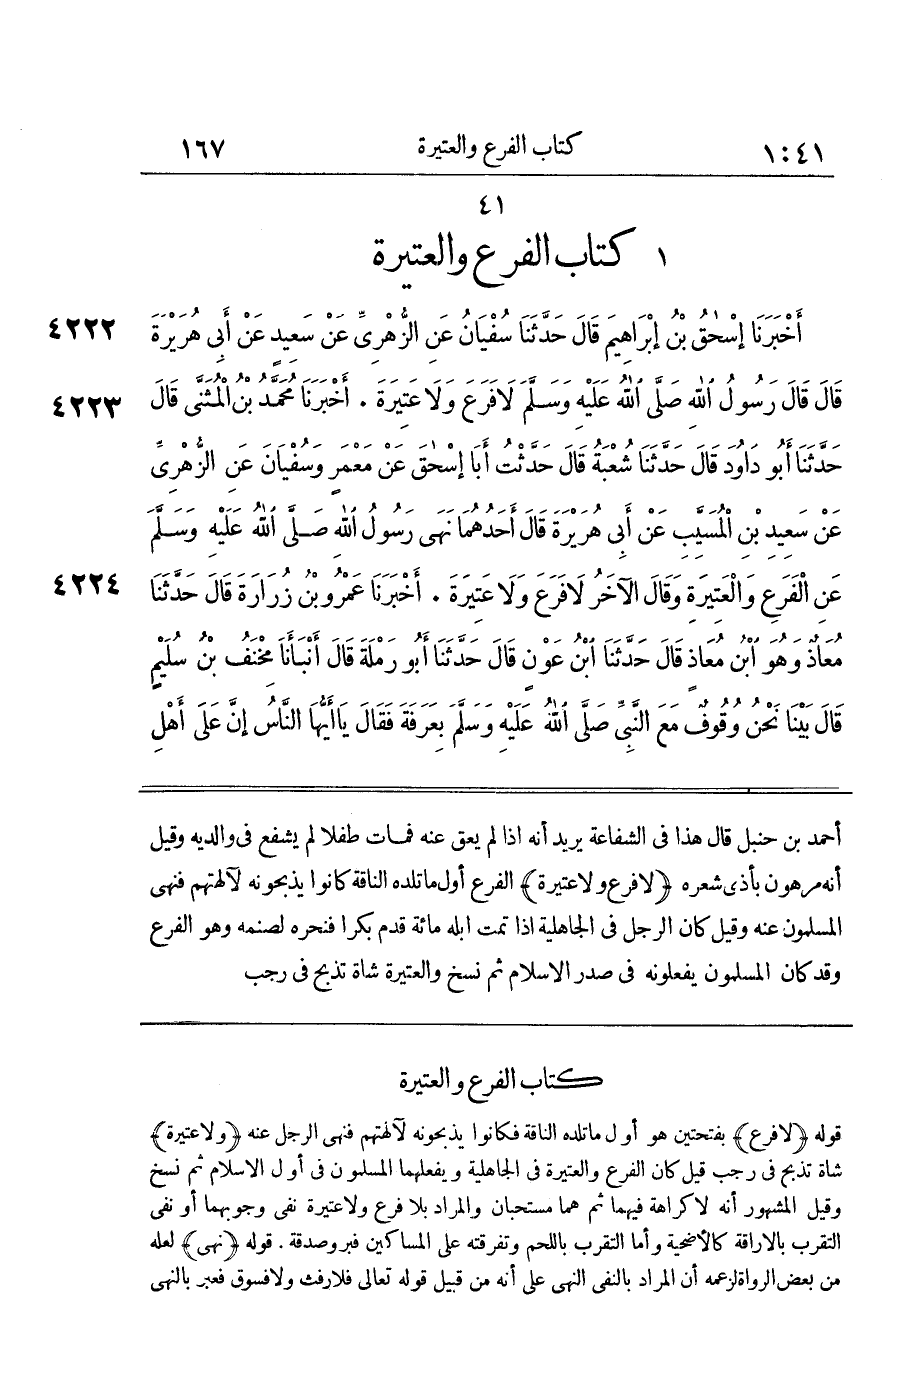 ٤١:١ كتاب الفرع والعتيرة ١٦٧
٤١
١ كتاب الفرع والعتيرة
أَخْبَرَنَا إِسْحٰقُ بْنُ إِبْرَاهِيمَ قَالَ حَدَّثَنَا سُفْيَانُ عَنِ الزُّهْرِىِّ عَنْ سَعِيدٍ عَنْ أَبِى هُرَيْرَةَ ٤٢٢٢
قَالَ قَالَ رَسُولُ اللهِ صَلَّى اللهُ عَلَيْهِ وَسَلَّمَ لَا فَرَعَ وَلَا عَتِيرَةَ . أَخْبَرَنَا مُحَمَّدُ بْنُ الْمُثَنَّى قَالَ ٤٢٢٣
حَدَّثَنَا أَبُو دَاوُدَ قَالَ حَدَّثَنَا شُعْبَةُ قَالَ حَدَّثْتُ أَبَا إِسْحٰقَ عَنْ مَعْمَرٍ وَسُفْيَانَ عَنِ الزُّهْرِىِّ
عَنْ سَعِيدِ بْنِ الْمُسَيَّبِ عَنْ أَبِى هُرَيْرَةَ قَالَ أَحَدُهُمَا نَهَى رَسُولُ اللهِ صَلَّى اللهُ عَلَيْهِ وَسَلَّمَ
عَنِ الْفَرَعِ وَالْعَتِيرَةِ وَقَالَ الْآخَرُ لَا فَرَعَ وَلَا عَتِيرَةَ . أَخْبَرَنَا عَمْرُو بْنُ زُرَارَةَ قَالَ حَدَّثَنَا ٤٢٢٤
مُعَاذٌ وَهُوَ ابْنُ مُعَاذٍ قَالَ حَدَّثَنَا ابْنُ عَوْنٍ قَالَ حَدَّثَنَا أَبُو رَمْلَةَ قَالَ أَنْبَأَنَا مِخْنَفُ بْنُ سُلَيْمٍ
قَالَ بَيْنَا نَحْنُ وُقُوفٌ مَعَ النَّبِىِّ صَلَّى اللهُ عَلَيْهِ وَسَلَّمَ بِعَرَفَةَ فَقَالَ يَا أَيُّهَا النَّاسُ إِنَّ عَلَى أَهْلِ
أحمد بن حنبل قال هذا فى الشفاعة يريد أنه اذا لم يعق عنه فمات طفلا لم يشفع فى والديه وقيل
أنه مرهون بأذى شعره ﴿لا فرع ولا عتيرة﴾ الفرع أول ما تلده الناقة كانوا يذبحونه لآلهتهم فنهى
المسلمون عنه وقيل كان الرجل فى الجاهلية اذا تمت ابله مائة قدم بكرا فنحره لصنمه وهو الفرع
وقد كان المسلمون يفعلونه فى صدر الاسلام ثم نسخ والعتيرة شاة تذبح فى رجب
كتاب الفرع والعتيرة
قوله ﴿لا فرع﴾ بفتحتين هو أول ما تلده الناقة فكانوا يذبحونه لآلهتهم فنهى الرجل عنه ﴿ولا عتيرة﴾
شاة تذبح فى رجب قيل كان الفرع والعتيرة فى الجاهلية ويفعلهما المسلمون فى أول الاسلام ثم نسخ
وقيل المشهور أنه لا كراهة فيهما ثم هما مستحبان والمراد بلا فرع ولا عتيرة نفى وجوبهما أو نفى
التقرب بالاراقة كالأضحية وأما التقرب باللحم وتفرقته على المساكين فبر وصدقة . قوله ﴿نهى﴾ لعله
من بعض الرواة لزعمه أن المراد بالنفى النهى على أنه من قبيل قوله تعالى فلا رفث ولا فسوق فعبر بالنهى